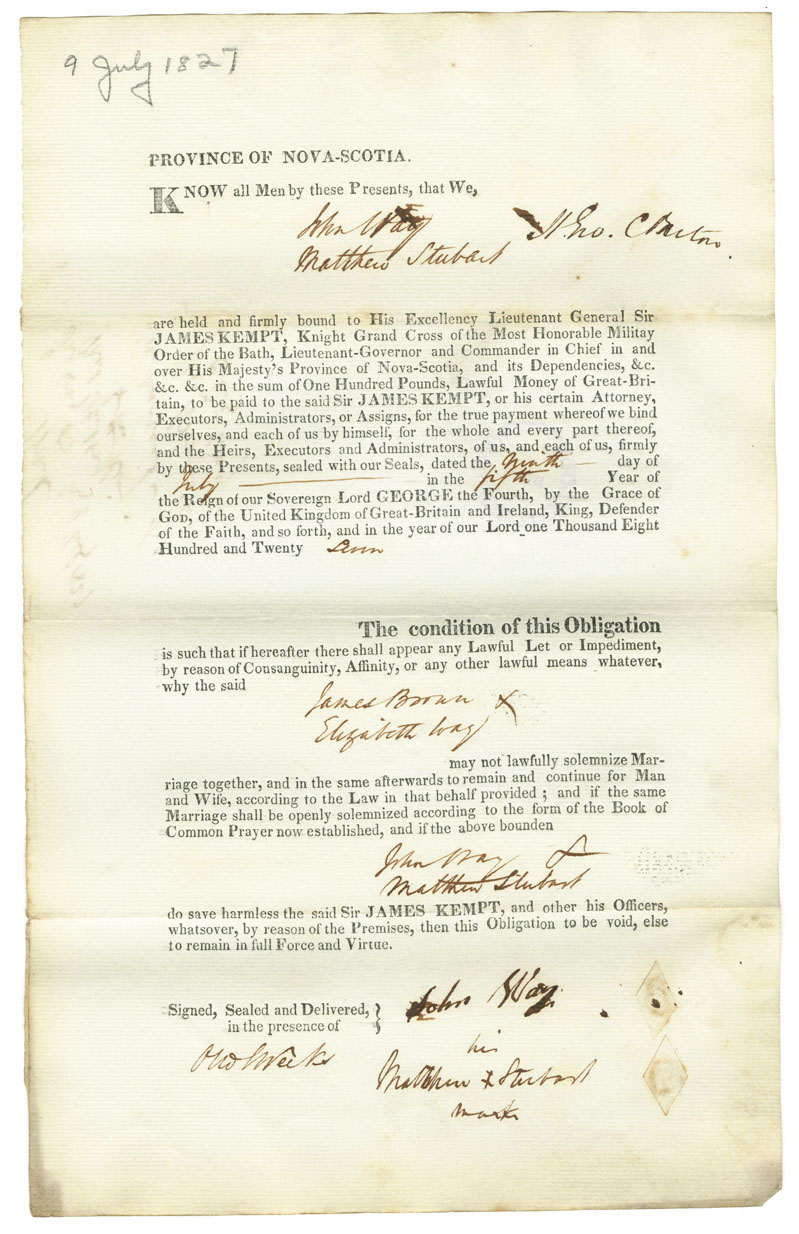 9 July 1827
PROVINCE OF NOVA-SCOTIA.
KNOW all Men by these Presents, that We,
John Way
Matthew Stubart
are held and firmly bound to His Excellency Lieutenant General Sir
JAMES KEMPT, Knight Grand Cross of the Most Honorable Militay
Order of the Bath, Lieutenant-Governor and Commander in Chief in and
over His Majesty's Province of Nova-Scotia, and its Dependencies, &c.
&c. &c. in the sum of One Hundred Pounds, Lawful Money of Great-Bri-
tain, to be paid to the said Sir JAMES KEMPT, or his certain Attorney,
Executors, Administrators, or Assigns, for the true payment whereof we bind
ourselves, and each of us by himself, for the whole and every part thereof,
and the Heirs, Executors and Administrators, of us, and each of us, firmly
by these Presents, sealed with our Seals, dated the Ninth — day of
July — in the fifth Year of
the Reign of our Sovereign Lord GEORGE the Fourth, by the Grace of
GOD, of the United Kingdom of Great-Britain and Ireland, King, Defender
of the Faith, and so forth, and in the year of our Lord one Thousand Eight
Hundred and Twenty
The condition of this Obligation
is such that if hereafter there shall appear any Lawful Let or Impediment,
by reason of Cousanguinity, Affinity, or any other lawful means whatever,
why the said
James Brown &
Elizabeth Way
may not lawfully solemnize Mar-
riage together, and in the same afterwards to remain and continue for Man
and Wife, according to the Law in that behalf provided ; and if the same
Marriage shall be openly solemnized according to the form of the Book of
Common Prayer now established, and if the above bounden
John Way &
Matthew Stubart
do save harmless the said Sir JAMES KEMPT, and other his Officers,
whatsover, by reason of the Premises, then this Obligation to be void, else
to remain in full Force and Virtue.
Signed, Sealed and Delivered, } John Way
in the presence of
his
Weeks Matthew X Stubart
mark